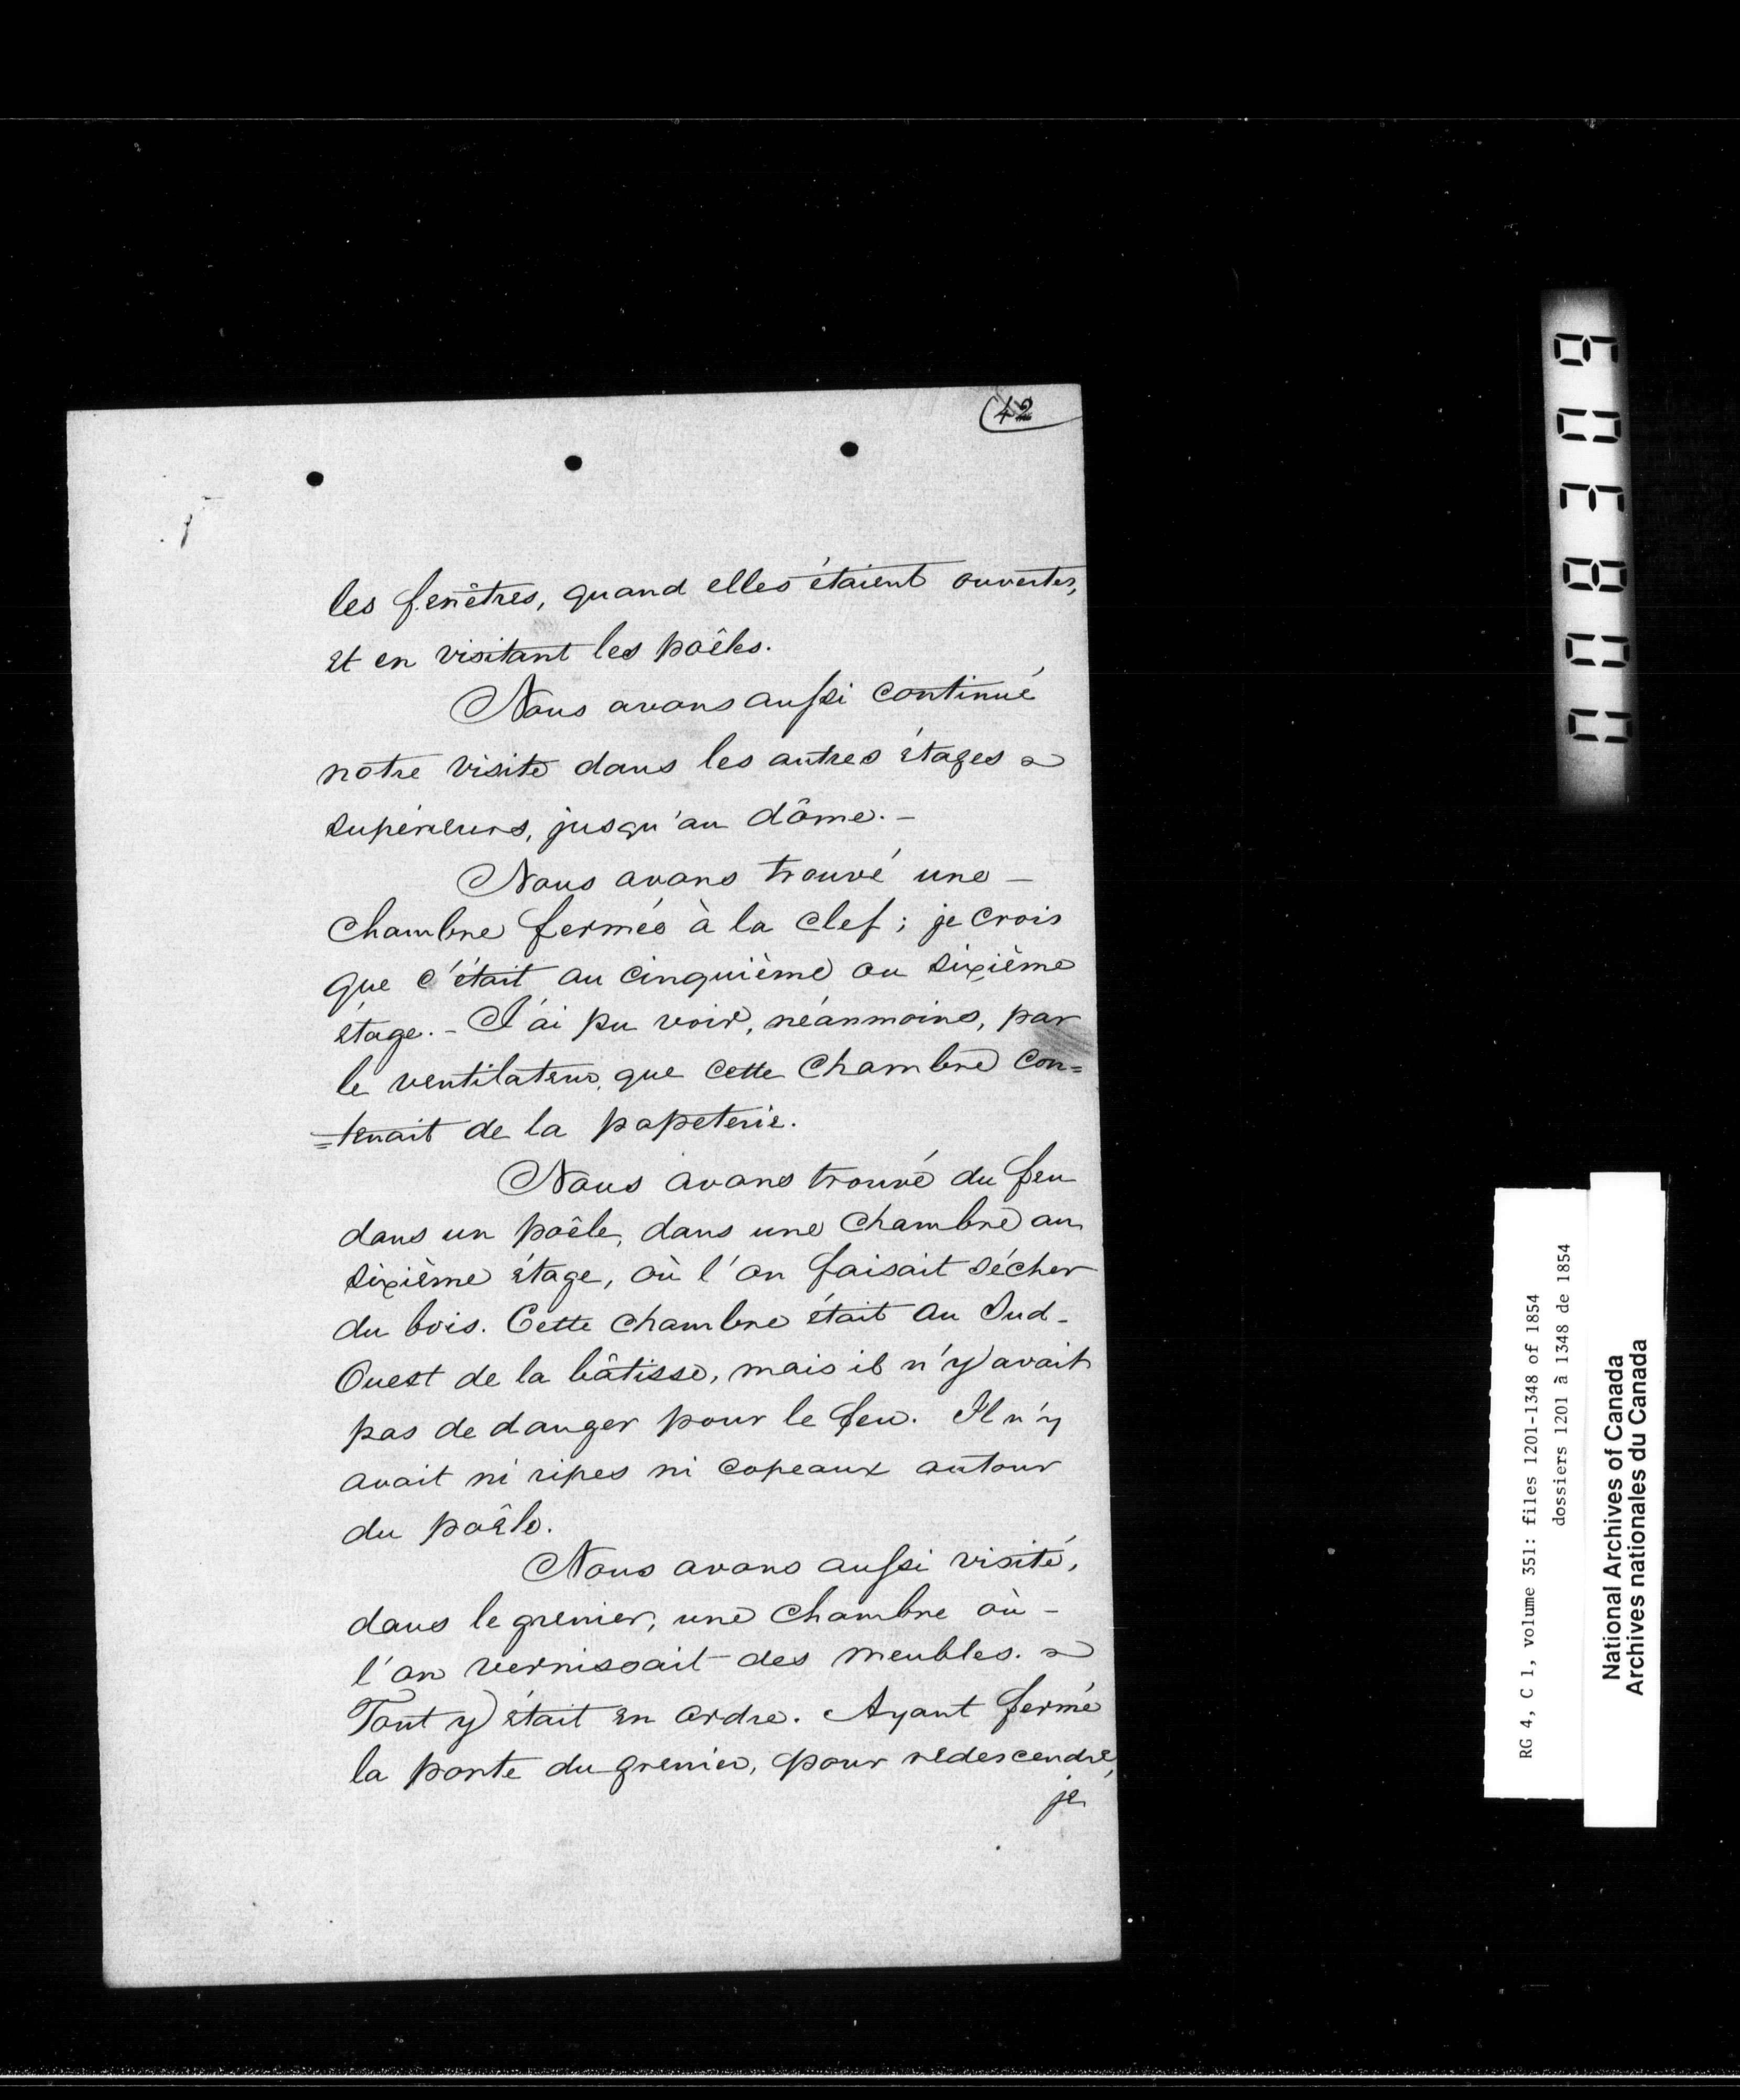 42
les fenêtres, quand elles étaient ouvertes,
et en visitant les poêles.
Nous avons aussi continué
notre visite dans les autres étages
supérieurs, jusqu'au dôme. -
Nous avons trouvé une -
chambre fermée à la clef ; je crois
que c'était au cinquième ou sixième
étage. - J'ai pu voir, néanmoins, par
le ventilateur, que cette chambre con=
=tenait de la papeterie.
Nous avons trouvé du feu
dans un poêle, dans une chambre au
sixième étage, où l'on faisait sécher
du bois. Cette chambre était au Sud-
Ouest de la bâtisse, mais il n'y avait
pas de danger pour le feu. Il n'y
avait ni ripes ni copeaux autour
du poêle.
Nous avons aussi visité,
dans le grenier, une chambre où -
l'on vernissait des meubles.
Tout y était en ordre. Ayant fermé
la porte du grenier, pour redescendre,
je
003E09
RG 4, C 1, volume 351: files 1201-1348 of 1854
dossiers 1201 à 1348 de 1854
National Archives of Canada
Archives nationales du Canada